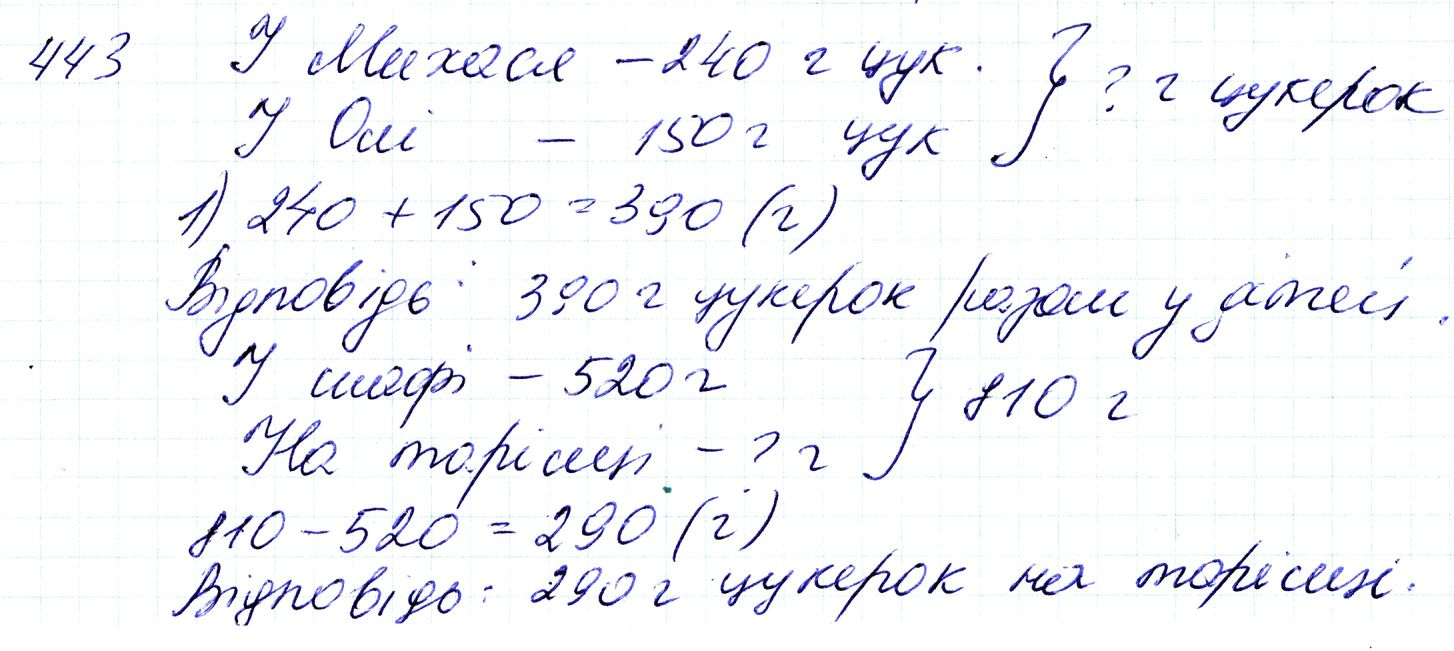 443 У Михася – 240 г цук. } ? г цукерок
У Олі – 150 г цук
1) 240 + 150 = 390 (г)
Відповідь: 390 г цукерок разом у дітей.
У шафі – 520 г } 810 г
На тарілці – ? г
810 – 520 = 290 (г)
Відповідь: 290 г цукерок на тарілці.